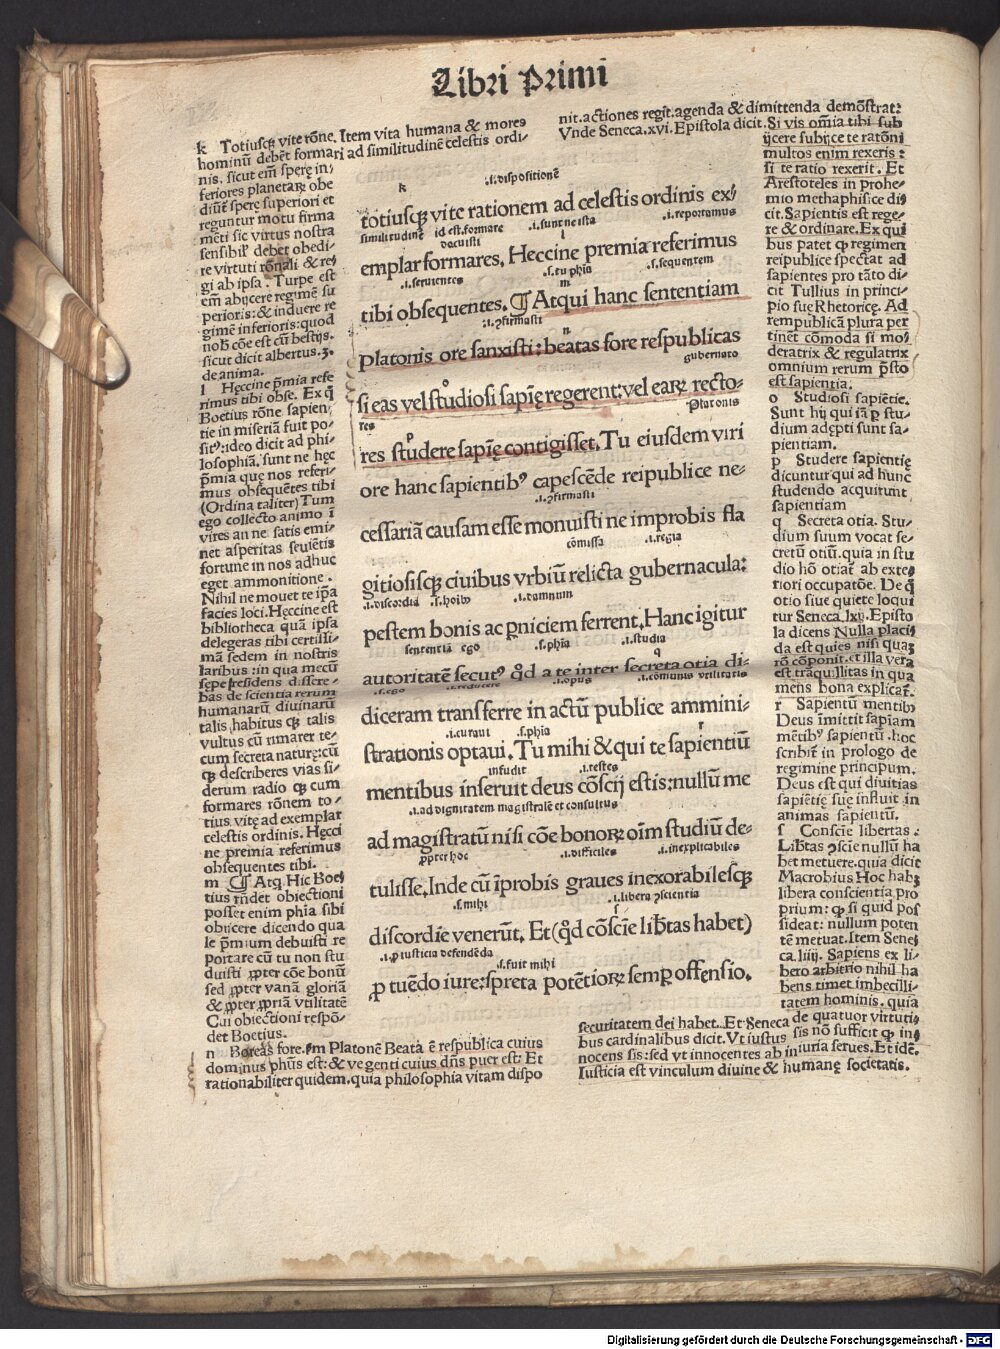 Libri Primi
k Totiusq; vite rōne. Item vita humana & mores
hominū debēt formari ad similitudinē celestis ordi-
nis. sicut em̄ sperę in/
feriores planetaꝝ obe
diūt sperę superiori et
reguntur motu firma
mēti sic virtus nostra
sensibil' debet obedi-
re virtuti rōnali & re/
gi ab ipsa. Turpe est
em̄ abijcere regimē su
perioris: & induere re
gimē inferioris: quod
nob̄ cōe est cū bestijs.
sicut dicit albertus. 3.
de anima.
l Hęccine p̄mia refe
rimus tibi obse. Ex q̄
Boetius rōne sapien/
tie in miseriā fuit po/
sitꝰ: ideo dicit ad phi/
losophiā. sunt ne hęc
p̄mia que nos referi/
mus obsequētes tibi
(Ordina taliter) Tum
ego collecto animo ī
vires an ne satis emi/
net asperitas seuiētis
fortune in nos adhuc
eget ammonitione.
Nihil ne mouet te ip̄a
facies loci. Hęccine est
bibliotheca quā ipsa
delegeras tibi certissi/
mā sedem in nostris
laribus: in qua mecū
sępe residens dissere/
bas de scientia rerum
humanarū diuinarū
talis habitus q; talis
vultus cū rimarer te/
cum secreta naturę: cū
q; describeres vias si/
derum radio q; cum
formares rōnem to/
tius vitę ad exemplar
celestis ordinis. Hęcci
ne premia referimus
obsequentes tibi.
m ¶ Atq; Hic Boe/
tius rn̄det obiectioni
posset enim phīa sibi
obijcere dicendo qua
le p̄mium debuisti re
portare cū tu non stu
duisti ꝓpter cōe bonū
sed ꝓpter vanā gloriā
& ꝓpter ꝓpriā vtilitatē
Cui obiectioni respō/
det Boetius.
n Boetas fore. fm Platonē Beata ē respublica cuius
dominus phūs est: & ve genti cuius dn̄s puer est: Et
rationabiliter quidem. quia philosophia vitam dispo
.i. dispositionē
k
totiusq; vite rationem ad celestis ordinis ex/
similitudinē id est. formare .i. sunt ne ista .i. reportamus
docuisti l
emplar formares. Heccine premia referimus
.i. seruientes .s. tu phīa .s. sequentem
m
tibi obsequentes. ¶ Atqui hanc sententiam
.i. ꝯfirmasti n
Platonis ore sanxisti: beatas fore respublicas
o gubernato
si eas vel studiosi sapiē regerent: vel earꝝ recto-
res p Platonis
res studere sapiē contigisset. Tu eiusdem viri
ore hanc sapientibꝰ capescēde reipublice ne-
.i. ꝯfirmasti
cessariā causam esse monuisti ne improbis fla
cōmissa .i. regia
gitiosisq; ciuibus vrbiū relicta gubernacula:
.i. discordiā .s. hoībꝰ .i. damnum
pestem bonis ac ꝑniciem ferrent. Hanc igitur
sententiā ego .s. phīa .i. studia
q
autoritatē secutꝰ qd̄ a te inter secreta otia di-
.s. ego .i. reducere .i. opus .i. cōmunis vtilitatis
diceram transferre in actū publice ammini-
.i. curaui .s. phīa r
strationis optaui. Tu mihi & qui te sapientiū
infudit .i. testes
mentibus inseruit deus cōscij estis: nullū me
.i. ad dignitatem magistralē et consulꝰ
ad magistratū nisi cōe bonorꝝ oīm studiū de-
ꝓpter hoc .i. difficiles .i. inexplicabiles
tulisse. Inde cū īprobis graues inexorabilesq;
.s. mihi .i. libera ꝯscientia
s
discordie venerūt. Et (qd̄ cōsciē lib̄tas habet)
.i. ꝑ iusticia defendēda .s. fuit mihi
ꝑ tuēdo iure: spreta potētiorꝝ semꝑ offensio.
nit. actiones regit. agenda & dimittenda demōstrat:
Vnde Seneca. xvi. Epistola dicit. Si vis om̄ia tibi sub
ijcere subijce te ratōni
multos enim rexeris:
si te ratio rexerit. Et
Arestoteles in prohe-
mio methaphisice di
cit. Sapientis est rege/
re & ordinare. Ex qui
bus patet ꝙ regimen
reipublice spectat ad
sapientes pro tāto di/
cit Tullius in princi/
pio suę Rhetorice. Ad
rempublicā plura per
tinēt cōmoda si mo/
deratrix & regulatrix
omnium rerum p̄sto
est sapientia.
o Studiosi sapiētie.
Sunt hij qui iā ꝑ stu/
dium adepti sunt sa/
pientiam.
p Studere sapientię
dicuntur qui ad hunc
studendo acquirunt
sapientiam
q Secreta otia. Stu/
dium suum vocat se/
cretū otiū. quia in stu
dio hō otiat̄ ab exte/
riori occupatōe. De q̄
otio siue quiete loqui
tur Seneca. lxv. Episto
la dicens Nulla placi/
da est quies nisi quaꝫ
rō cōponit. et illa vera
est trāquillitas in qua
mens bona explicat̄.
r Sapientū mentibꝰ
Deus īmittit sapīam
mētibꝰ sapientū. hoc
scribit̄ in prologo de
regimine principum.
Deus est qui diuitias
sapiētię suę influit in
animas sapientū.
s Consciē libertas:
Lib̄tas ꝯsciē nullū ha
bet metuere. quia dicit
Macrobius Hoc habꝫ
libera conscientia pro
prium: ꝙ si quid pos
sideat: nullum poten
tē metuat. Item Sene/
ca. liiij. Sapiens ex li/
bero arbitrio nihil ha
bens timet imbecilli/
tatem hominis. quia
securitatem dei habet. Et Seneca de quatuor virtuti/
bus cardinalibus dicit. Vt iustus sis nō sufficit ꝙ in/
nocens sis: sed vt innocentes ab iniuria serues. Et idē.
Iusticia est vinculum diuine & humanę societatis.
Digitalisierung gefördert durch die Deutsche Forschungsgemeinschaft - DFG